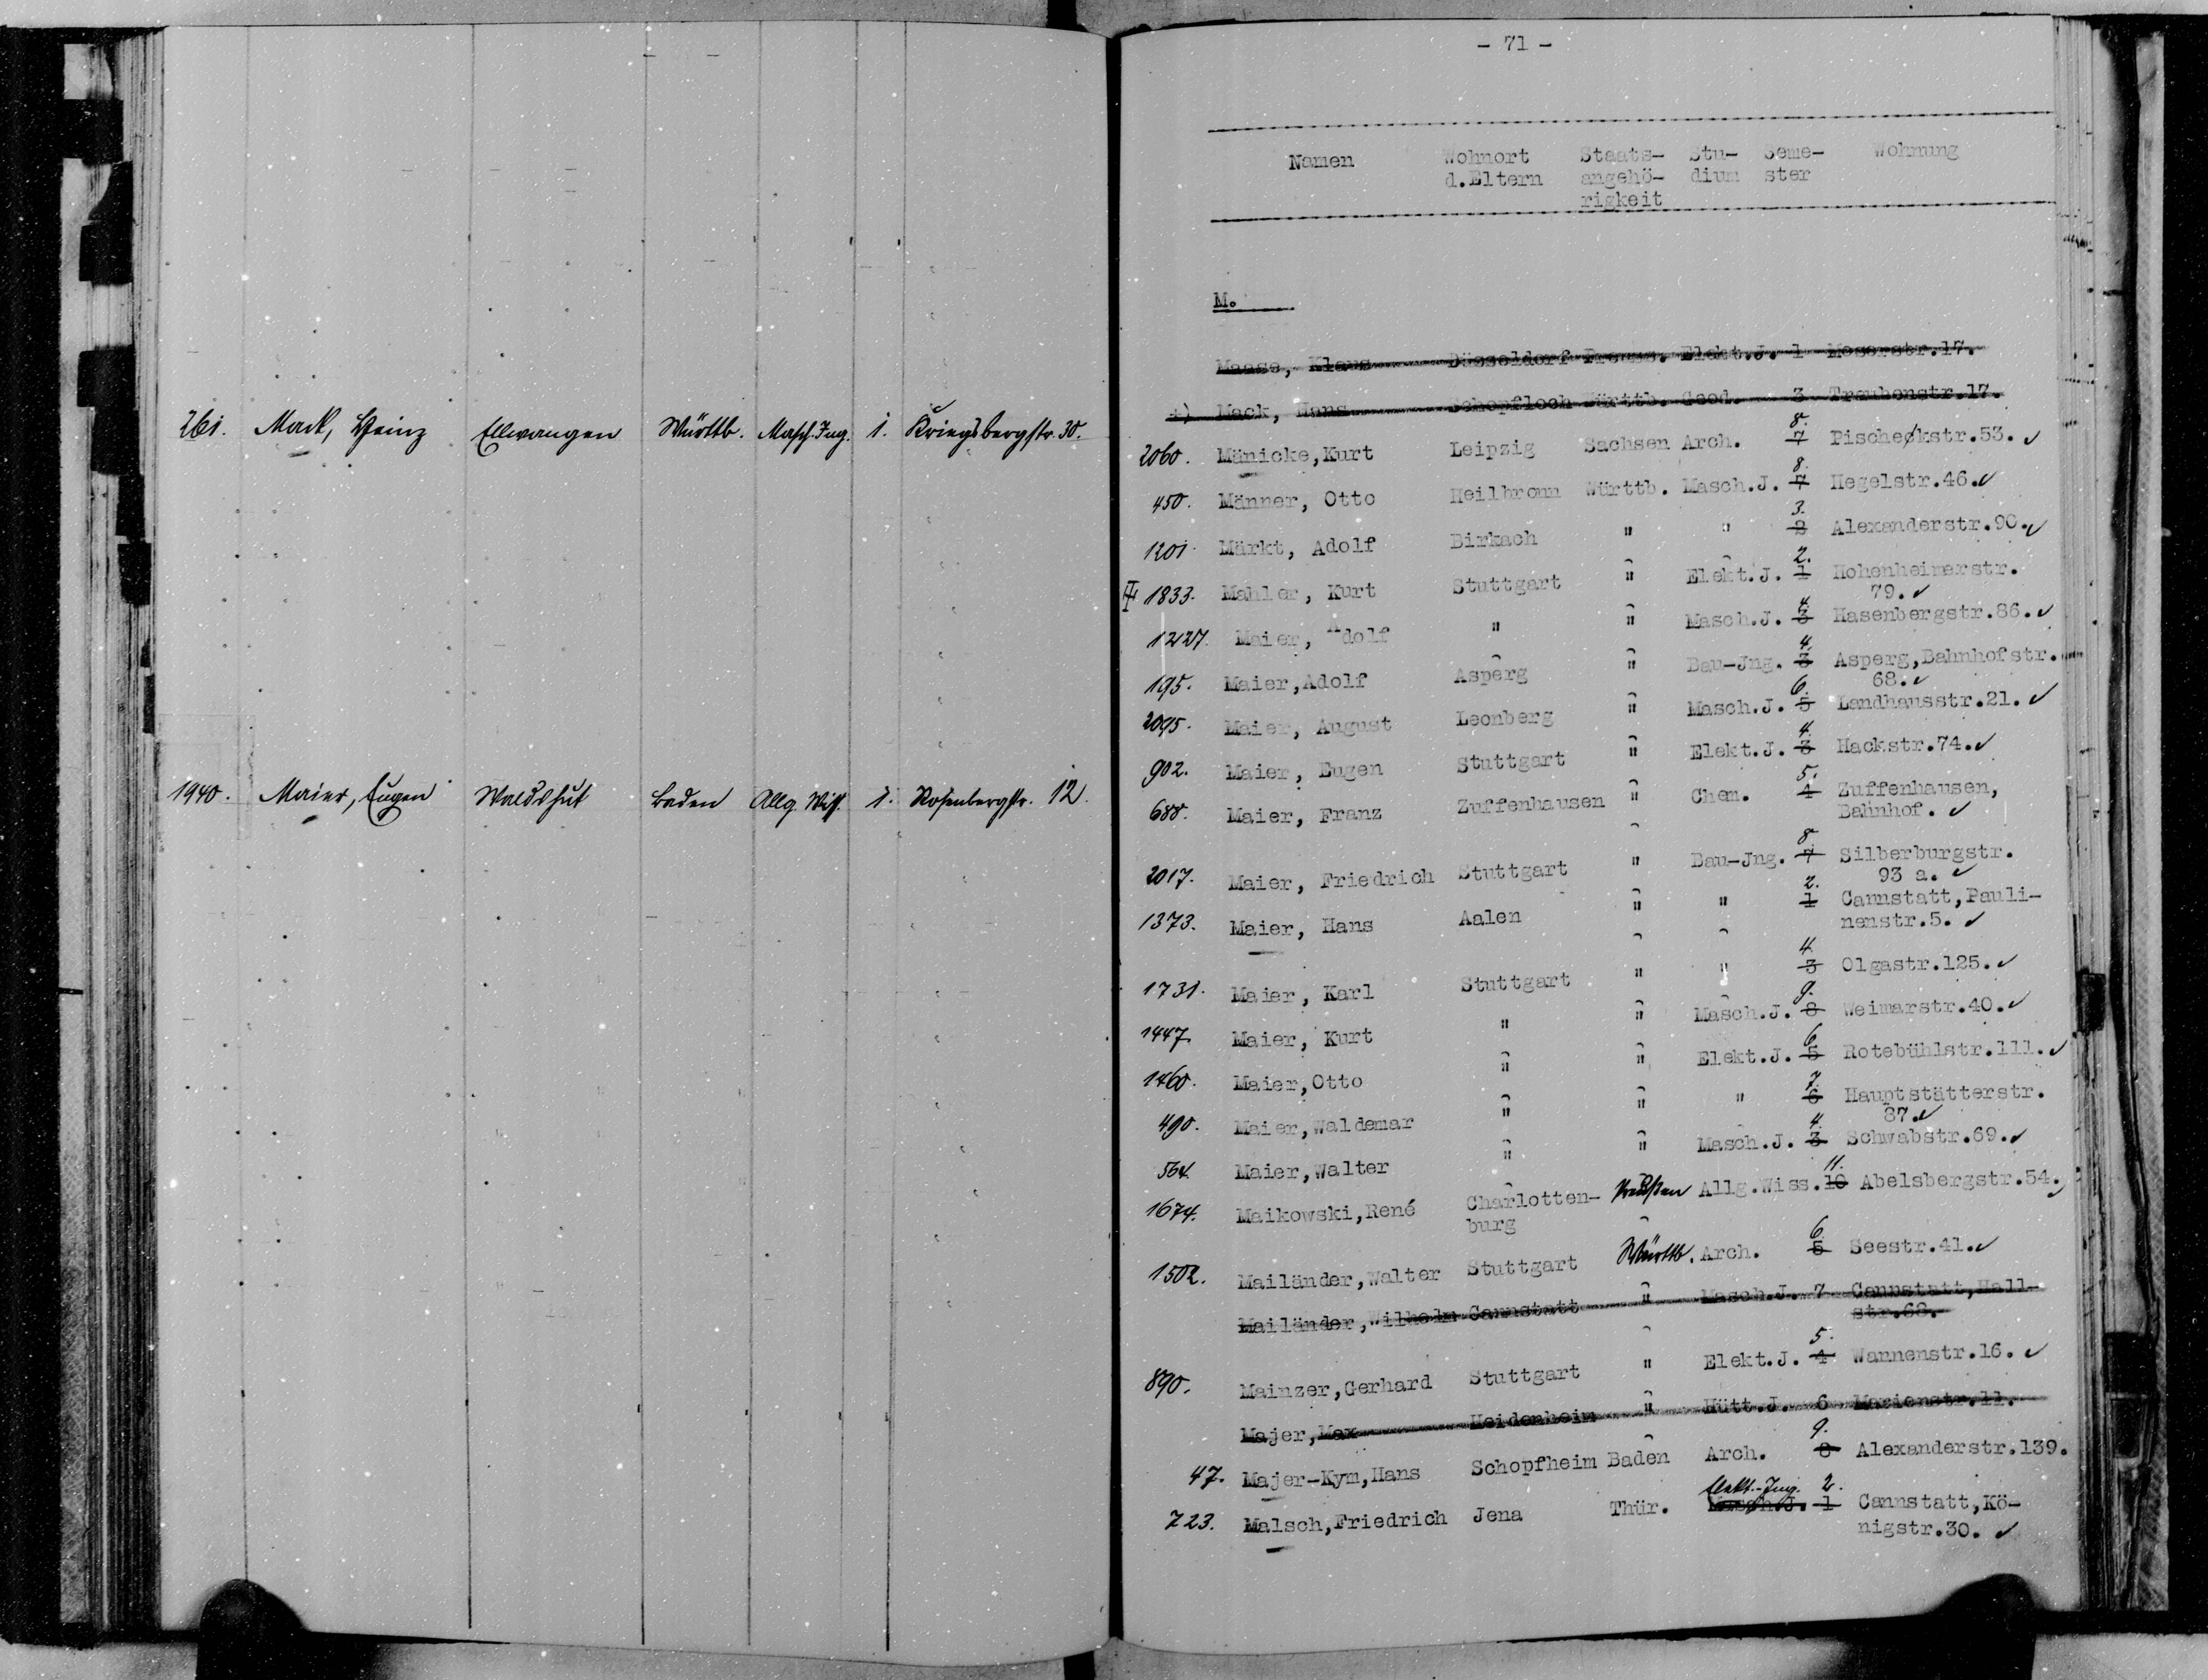 261. Mack, Heinz Ellwangen Württb. Masch.Ing. 1. Kriegsbergstr. 30.
1940. Maier, Eugen Waldshut Baden Allg. Wiss. 1. Rosenbergstr. 12.
- 71 -
Namen Wohnort Staats- Stu- Seme- Wohnung
d.Eltern angehö- dium ster
rigkeit
M.
Maase, Klaus Düsseldorf Preuss. Elekt.J. 1 Moserstr.17.
+) Mack, Hans Schopfloch Württb. Geod. 3 Traubenstr.17.
2060. Mänicke,Kurt Leipzig Sachsen Arch. 7 8. Pischeckstr.53. ✓
450. Männer, Otto Heilbronn Württb. Masch.J. 7 8. Hegelstr.46. ✓
1201. Märkt, Adolf Birkach " " 2 3. Alexanderstr.90. ✓
1833. Mahler, Kurt Stuttgart " Elekt.J. 1 2. Hohenheimerstr.
79. ✓
1227. Maier, Adolf " " Masch.J. 3 4. Hasenbergstr.86. ✓
195. Maier,Adolf Asperg " Bau-Jng. 3 4. Asperg,Bahnhofstr.
68. ✓
2095. Maier, August Leonberg " Masch.J. 5 6. Landhausstr.21. ✓
902. Maier, Eugen Stuttgart " Elekt.J. 3 4. Hackstr.74. ✓
688. Maier, Franz Zuffenhausen " Chem. 4 5. Zuffenhausen,
Bahnhof. ✓
2017. Maier, Friedrich Stuttgart " Bau-Jng. 7 8 Silberburgstr.
93 a. ✓
1373. Maier, Hans Aalen " " 1 2. Cannstatt,Pauli-
nenstr.5. ✓
1731. Maier, Karl Stuttgart " " 3 4. Olgastr.125. ✓
1447. Maier, Kurt " " Masch.J. 8 9. Weimarstr.40. ✓
1460. Maier,Otto " " Elekt.J. 5 6 Rotebühlstr.111. ✓
490. Maier,Waldemar " " " 6 7. Hauptstätterstr.
87. ✓
564. Maier,Walter " " Masch.J. 3 4. Schwabstr.69. ✓
1674. Maikowski,René Charlotten- Preußen Allg.Wiss. 10 11. Abelsbergstr.54. ✓
burg
1502. Mailänder,Walter Stuttgart Württb. Arch. 5 6 Seestr.41. ✓
Mailänder,Wilhelm Cannstatt " Masch.J. 7 Cannstatt,Hall-
str.68.
890. Mainzer,Gerhard Stuttgart " Elekt.J. 4 5. Wannenstr.16. ✓
Majer,Max Heidenheim " Hütt.J. 6 Marienstr.11.
47. Majer-Kym,Hans Schopfheim Baden Arch. 8 9. Alexanderstr.139.
723. Malsch,Friedrich Jena Thür. Masch.J. Elekt.-Ing. 1 2. Cannstatt,Kö-
nigstr.30. ✓